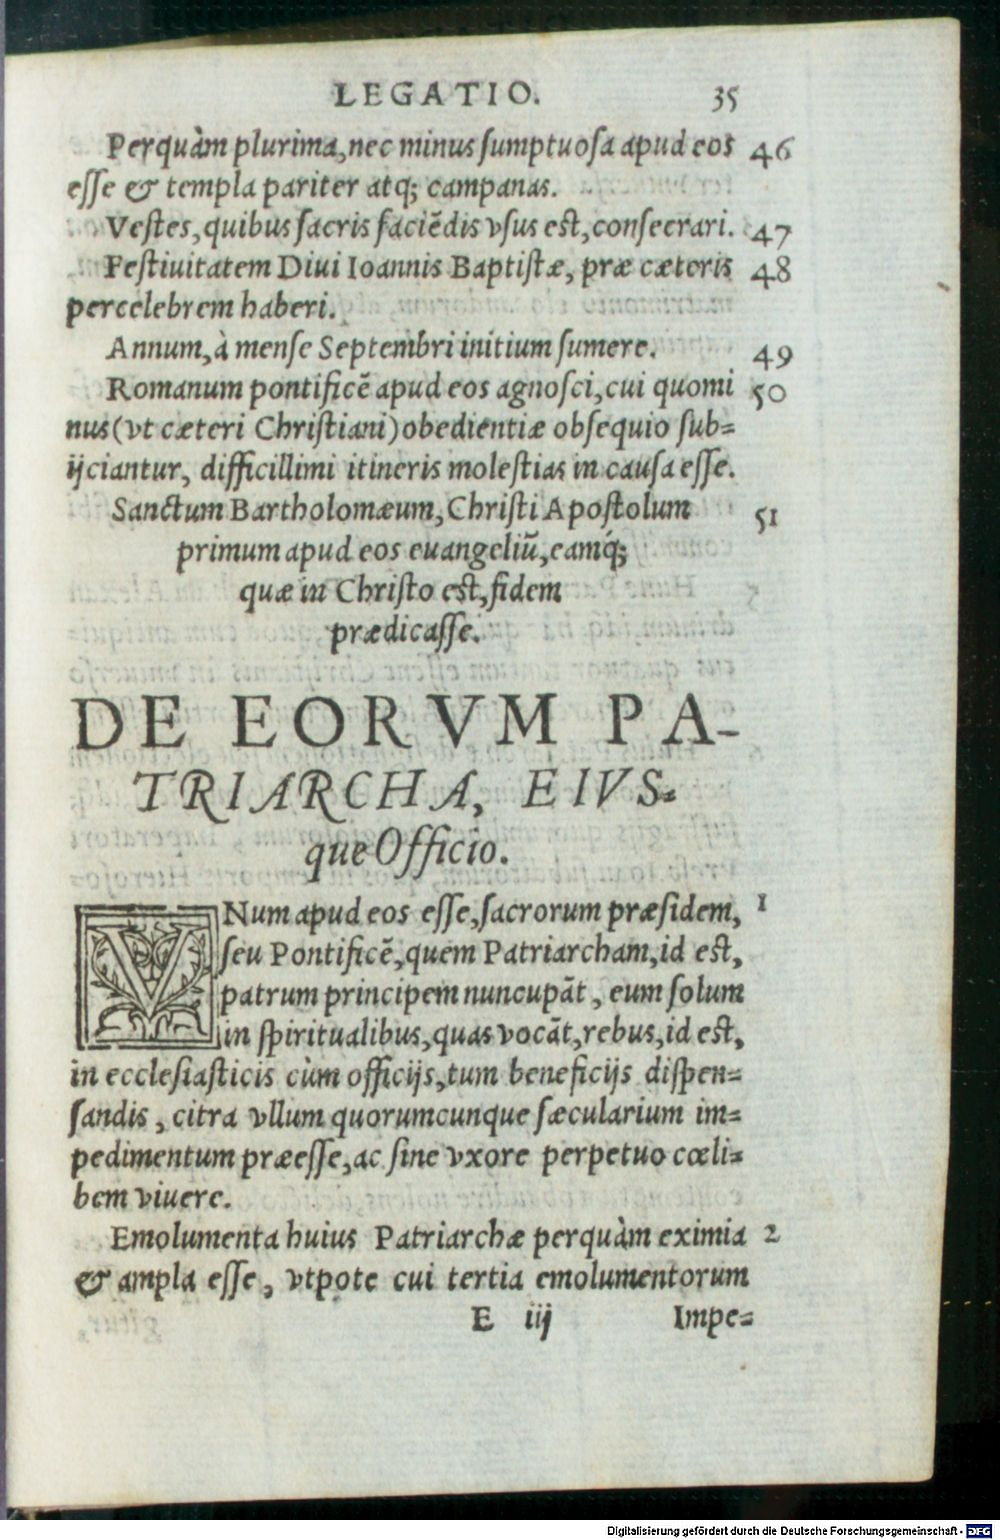 LEGATIO. 35
Perquàm plurima, nec minus sumptuosa apud eos 46
esse & templa pariter atq; campanas.
Vestes, quibus sacris faciēdis vsus est, consecrari. 47
Festiuitatem Diui Ioannis Baptistæ, præ cæteris 48
percelebrem haberi.
Annum, à mense Septembri initium sumere. 49
Romanum pontificē apud eos agnosci, cui quomi 50
nus (vt cæteri Christiani) obedientiæ obsequio sub-
ijciantur, difficillimi itineris molestias in causa esse.
Sanctum Bartholomæum, Christi Apostolum 51
primum apud eos euangeliū, eamq́;
quæ in Christo est, fidem
prædicasse.
DE EORVM PA-
TRIARCHA, EIVS-
que Officio.
VNum apud eos esse, sacrorum præsidem, 1
seu Pontificē, quem Patriarcham, id est,
patrum principem nuncupāt, eum solum
in spiritualibus, quas vocāt, rebus, id est,
in ecclesiasticis cùm officijs, tum beneficijs dispen-
sandis, citra vllum quorumcunque sæcularium im-
pedimentum præesse, ac sine vxore perpetuo cæli-
bem viuere.
Emolumenta huius Patriarchæ perquàm eximia 2
& ampla esse, vtpote cui tertia emolumentorum
E iij Impe-
Digitalisierung gefördert durch die Deutsche Forschungsgemeinschaft - DFG